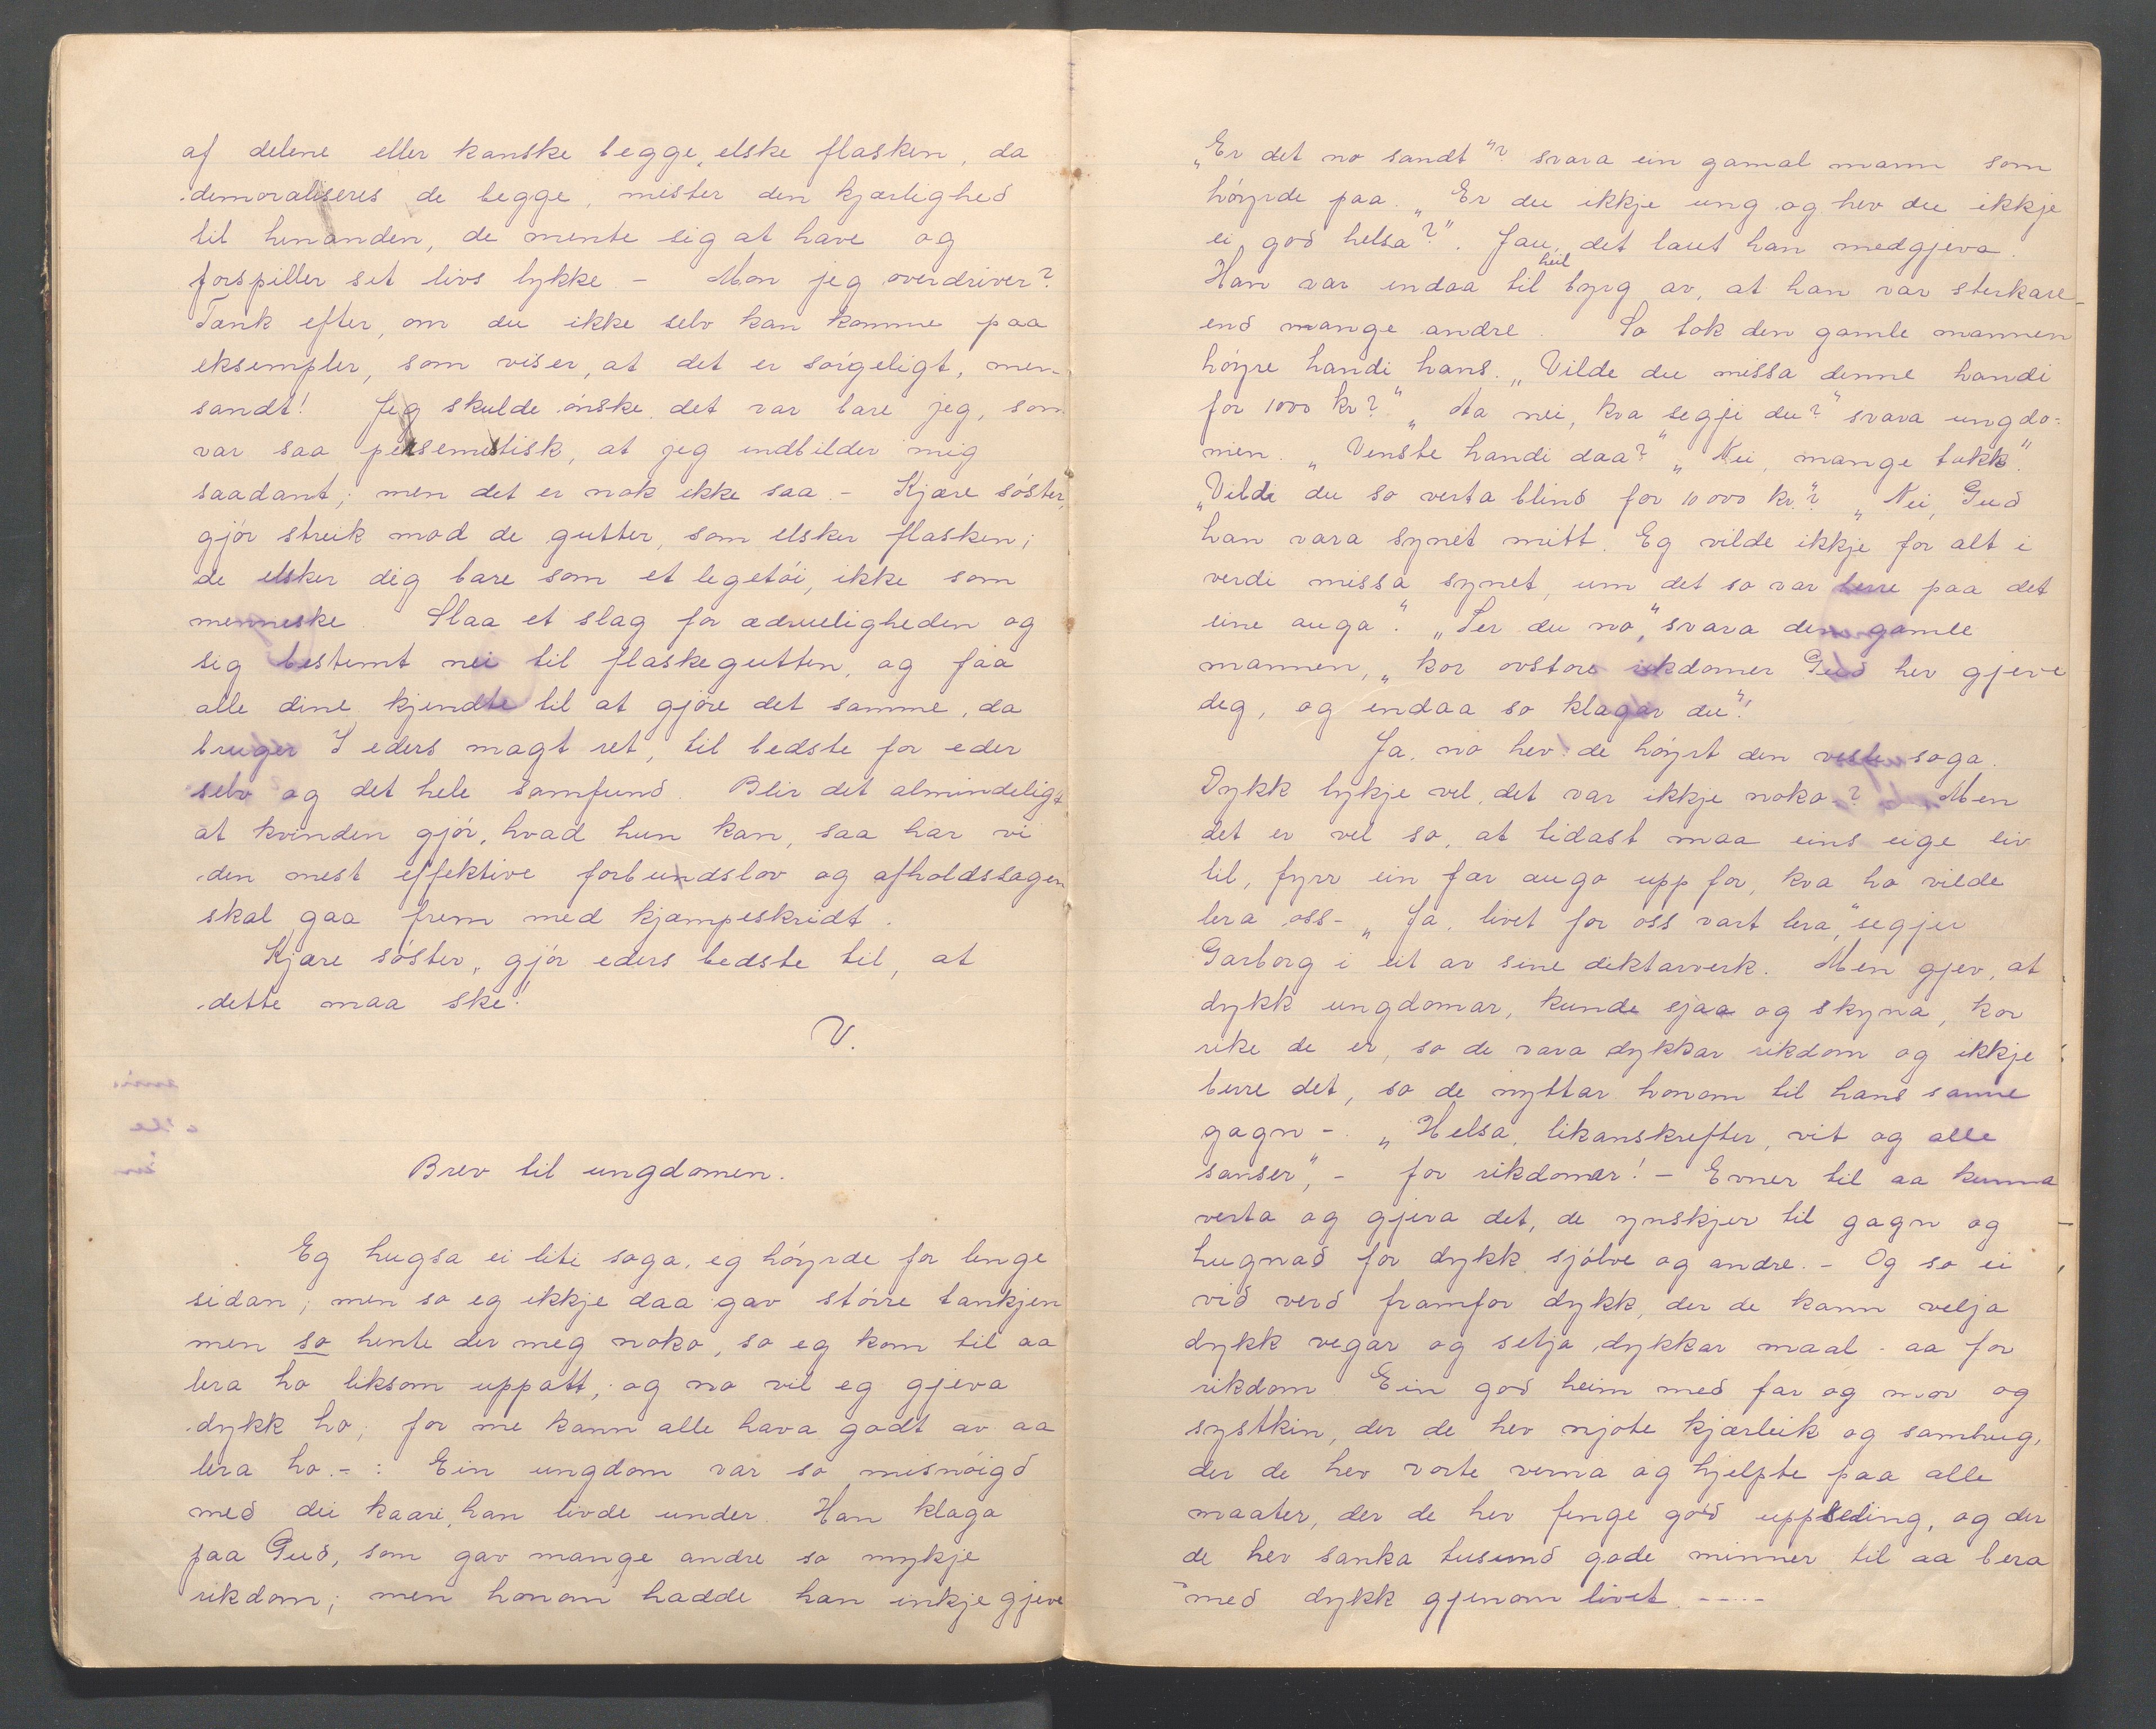 af delene eller kanske begge, elske flasken, da
demoraliseres de begge, mister den kjærlighed
til henanden, de mente sig at have og
forspiller set livs lykke - Mon jeg overdriver?
Tænk efter, om du ikke selv kan komme paa
eksempler, som viser, at det er sórgeligt, men
sandt! Jeg skulde ónske det var bare jeg, som
var saa pessemistisk, at jeg indbilder mig
saadant; men det er nok ikke saa. - Kjære sóster,
gjór streik mod de gutter, som elsker flasken;
de elsker dig bare som et legetói, ikke som
menneske. Slaa et slag for ædrueligheden og
sig bestemt nei til flaskegutten, og faa
alle dine kjendte til at gjóre det samme, da
bruger I eders magt ret, til bedste for eder
selv og det hele samfund Blir det almindeligt
at kvinden gjór, hvad hun kan, saa har vi
den mest effektive forbundslov og afholdssagen
skal gaa frem med kjæmpeskridt.
Kjære sóster, gjór eders bedste til, at
dette maa ske!
V.
Brev til ungdomen.
Eg hugsa ei liti soga, eg hóyrde for lenge
sidan; men so eg ikkje daa gav stórre tankjen
men so hente der meg noko, so eg kom til aa
lera ho liksom uppatt, og no vil eg gjeva
dykk ho; for me kann alle hava godt av aa
lera ho. - : Ein ungdom var so misnóigd
med dei kaari, han livde under. Han klaga
paa Gud, som gav mange andre so mykje
rikdom; men honom hadde han inkje gjeve
„Er det no sandt"? svara ein gamal mann som
hóyrde paa. „Er du ikkje ung og hev du ikkje
ei god helsa?". Jau, det laut han medgjeva.
Han var endaa til heil byrg av, at han var sterkare
end mange andre. So tok den gamle mannen
hóyre handi hans. „Vilde du missa denne handi
for 1000 kr?" „Aa nei, kva segji du?" svara ungdo-
men. „Venste handi daa?" „Nei, mange takk".
„Vilde du so verta blind for 10 000 kr"? „Nei, Gud
han vara synet mitt. Eg vilde ikkje for alt i
verdi missa synet, um det so var berre paa det
eine auga". „Ser du no", svara den gamle
mannen, „kor ovstore rikdomer Gud hev gjeve
deg, og endaa so klagar du"!
Ja, no hev de hóyrt den vesle soga.
Dykk tykje vel, det var ikkje noko? Men
det er vel so, at tidast maa eins eige liv
til, fyrr ein fær augo upp for, kva ho vilde
lera oss - „Ja, livet for oss vart lera", segjer
Garborg i eit av sine diktarverk. Men gjev, at
dykk ungdomar, kunde sjaa og skyna, kor
rike de er, so de vara dykkar rikdom og ikkje
berre det, so de nyttar honom til hans sanne
gagn -. „Helsa, likamskrefter, vit og alle
sanser", - for rikdomar! - Evner til aa kunna
verta og gjera det, de ynskjer til gagn og
hugnad for dykk sjólve og andre. - Og so ei
vid verd framfor dykk, der de kann velja
dykk vegar og setja dykkar maal - aa for
rikdom Ein god heim med far og mor og
systkin, der de hev njote kjærleik og samhug,
der de hev vorte verna og hjelpte paa alle
maater, der de hev fenge god uppseding, og der
de hev sanka tusund gode minner til aa bera
med dykk gjenom livet. -----